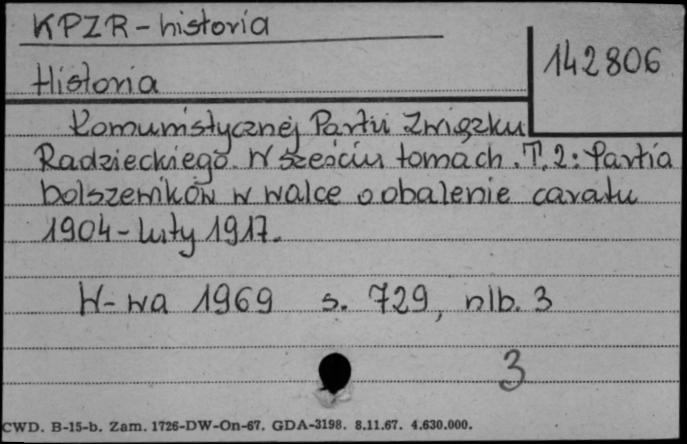 KPZR - historia
142806
Historia
Komunistycznej Partii Związku
Radzieckiego. W sześciu tomach. T. 2: Partia
bolszewików w walce o obalenie caratu
1904 - luty 1917.
W-wa 1969 s. 729, nlb. 3
3
CWD. B-15-b. Zam. 1726-DW-On-67. GDA-3198. 8.11.67. 4.630.000.